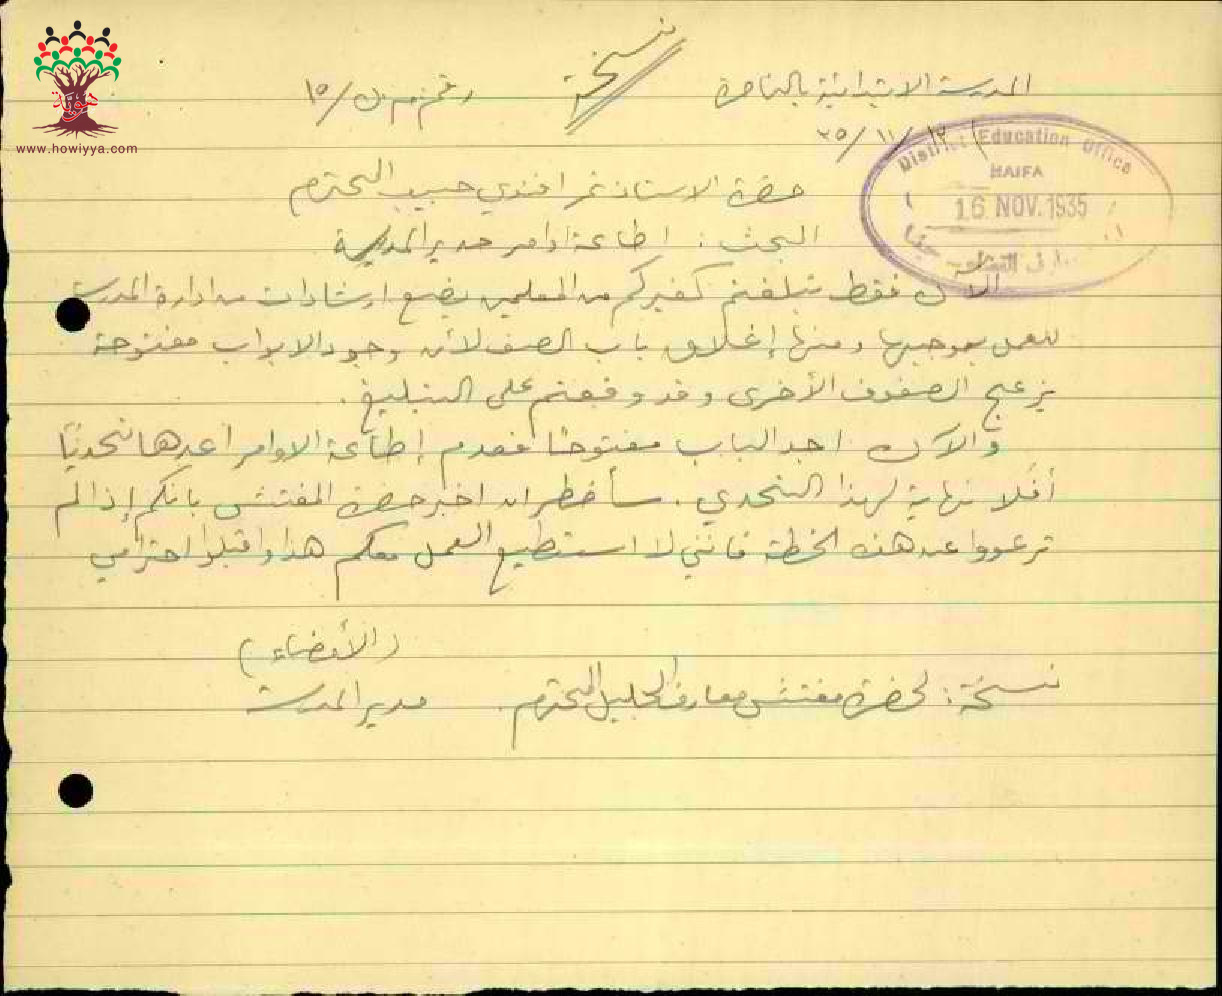 نسخة
المدرسة الابتدائية بالناصرة
رقم م.ن/١٥
١٢/١١/٣٥
District Education Office
HAIFA
16 NOV. 1935
حضرة الاستاذ نمر افندي حبيب المحترم
البحث: اطاعة اوامر مدير المدرسة
الآن فقط تبلغتم كغيركم من المعلمين بضع ارشادات من ادارة المدرسة
للعمل بموجبها ومنها إغلاق باب الصف لأن وجود الابواب مفتوحة
يزعج الصفوف الأخرى وقد وقعتم على التبليغ.
والآن اجد الباب مفتوحًا فعدم إطاعة الاوامر أعدها تحديًا
أفلا نهاية لهذا التحدي. سأضطر ان اخبر حضرة المفتش بانكم إذا لم
ترعووا عن هذه الخطة فانني لا استطيع العمل معكم هذا واقبلوا احترامي
(الأمضاء)
مدير المدرسة
نسخة: لحضرة مفتش معارف الجليل المحترم.
هوية
www.howiyya.com